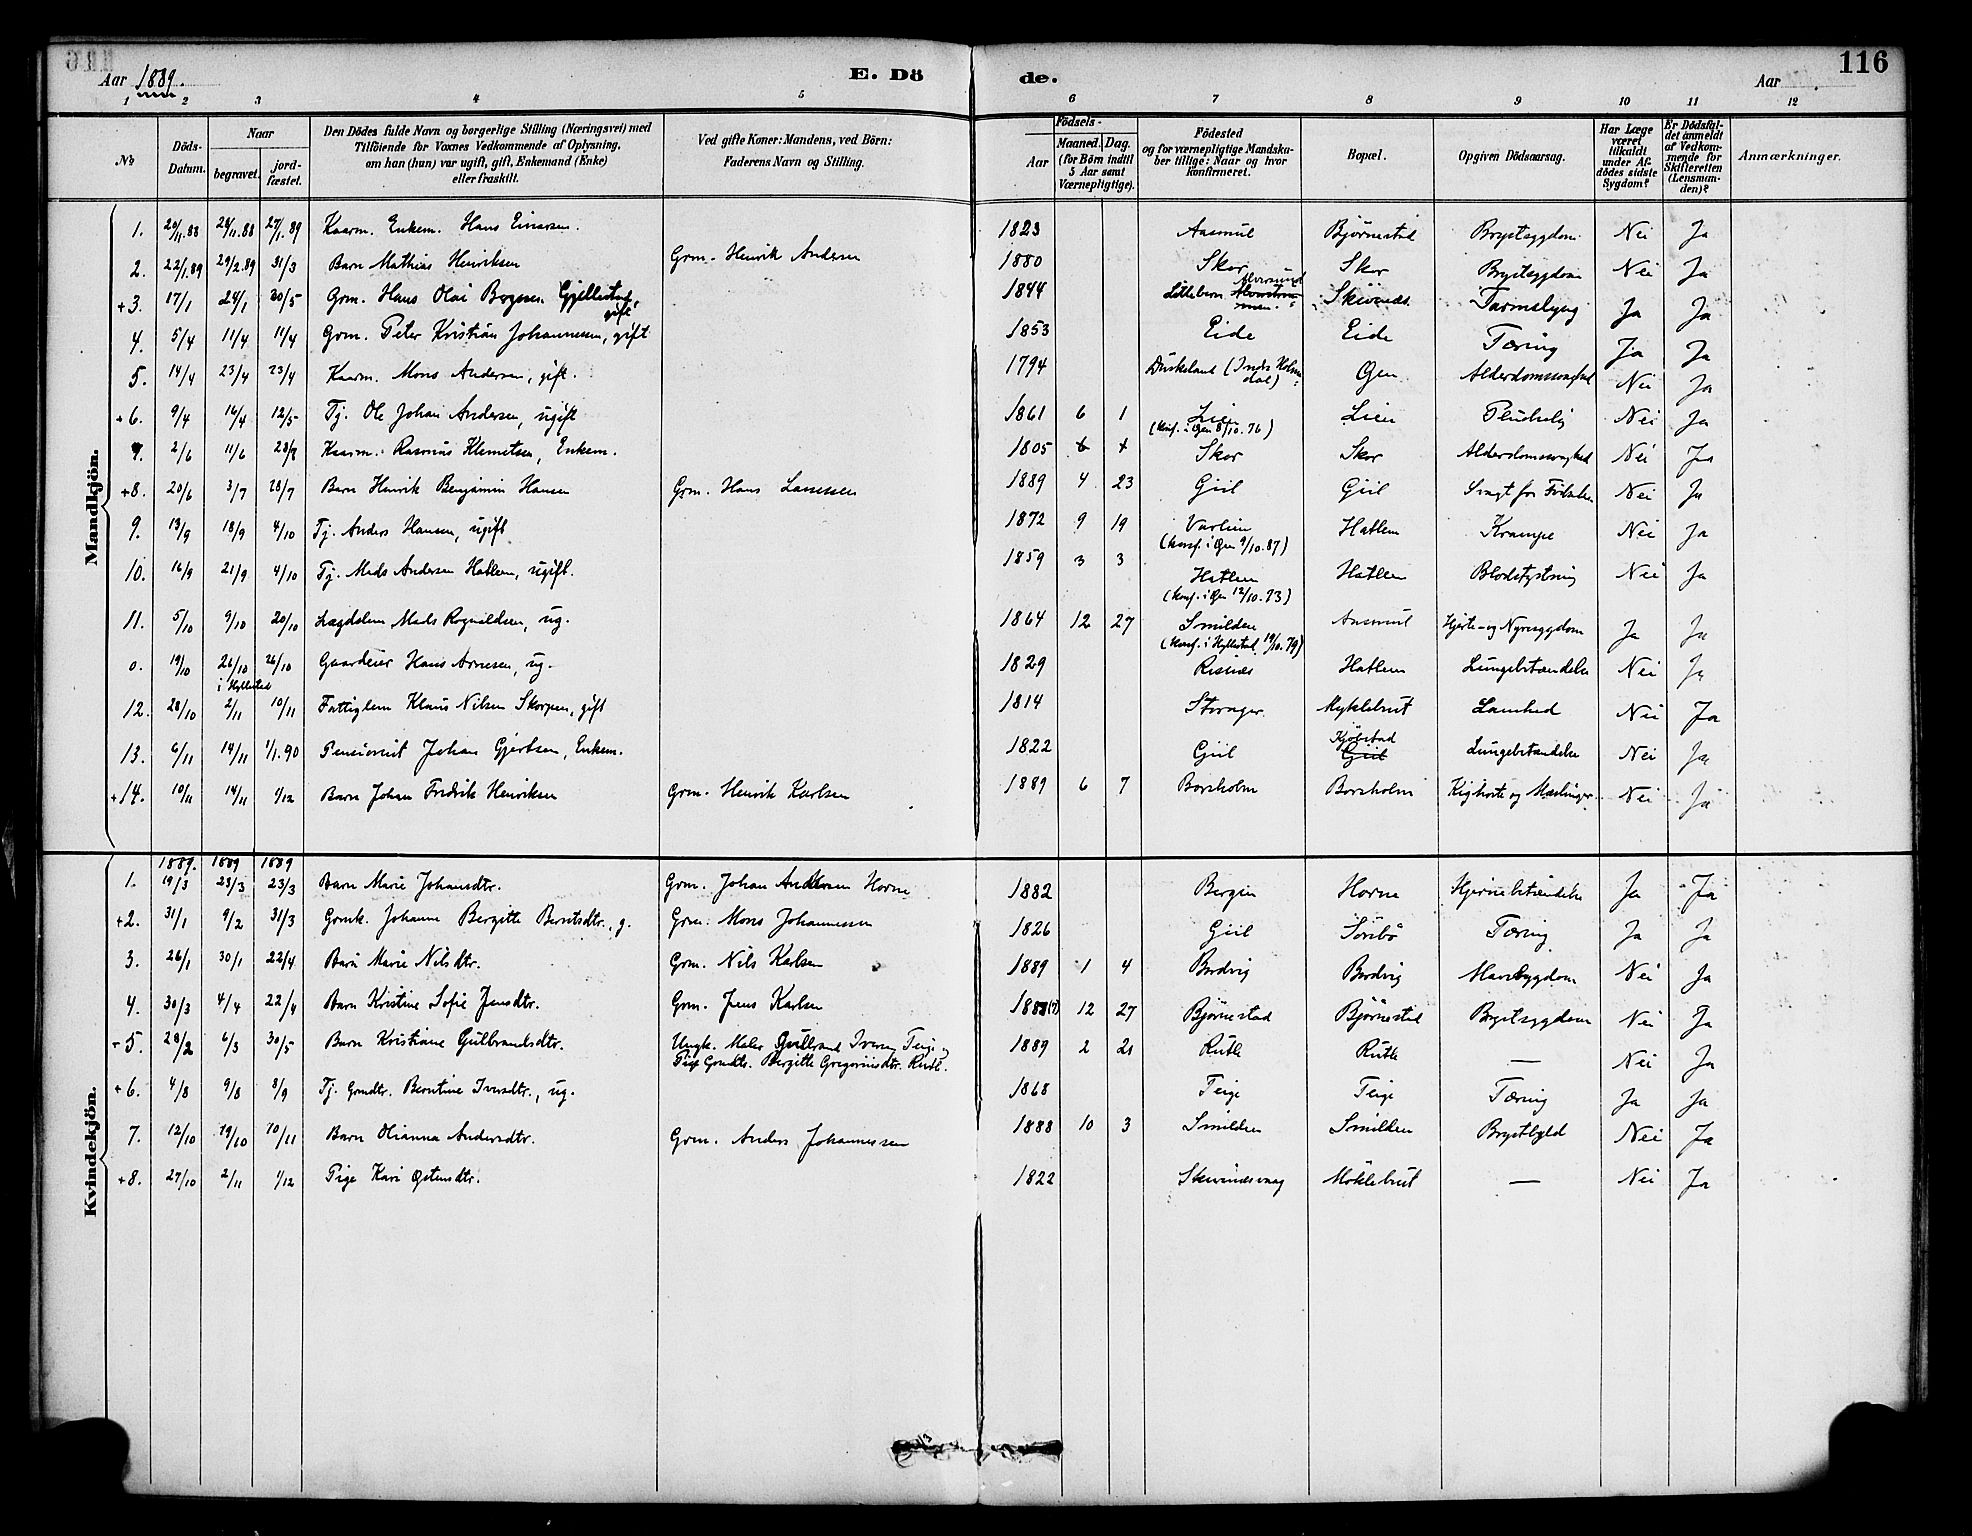 Aar 1889.
E. Dö
de.
Aar
116
1 2 3 4 5 6 7 8 9 10 11 12
No
Döds-Datum.
Naar
begravet.
jordfæstet.
Den Dödes fulde Navn og borgerlige Stilling (Næringsvei) med
Tilföiende for Voxnes Vedkommende af Oplysning,
om han (hun) var ugift, gift, Enkemand (Enke)
eller fraskilt.
Ved gifte Koner: Mandens, ved Börn:
Faderens Navn og Stilling.
Födsels-
Aar
Maaned. Dag.
(for Börn indtil
5 Aar samt
Værnepligtige).
Födested
og for værnepligtige Mandska-
ber tillige: Naar og hvor
konfirmeret.
Bopæl.
Opgiven Dödsaarsag.
Har Læge
været
tilkaldt
under Af-
dödes sidste
Sygdom?
Er Dödsfal-
det anmeldt
af Vedkom-
mende for
Skifteretten
(Lensman-
den)?
Anmærkninger.
Mandkjön.
1. 20/11.88 28/11.88 27/1.89 Kaarm. Enkem. Hans Einarsen. 1823 Aasmul Bjørnestad Brystsygdom Nei Ja
2. 22/1.89 29/2.89 31/3 Barn Mathias Henriksen Grm. Henrik Andersen 1880 Skor Skor Brystsygdom Nei Ja
+3. 17/1 24/1 30/5 Grm. Hans Olai Gjellestad, gift 1844 Alversund Skivenes Ja Ja
4. 5/4 11/4 11/4 Grm. Peter Kristian Johannessen, gift 1853 Eide Eide Tæring Ja Ja
5. 14/4 23/4 23/4 Kaarm. Mons Andersen, gift. 1794 (Indr. Holmedal) Øen Alderdomssvaghed Nei Ja
+6. 9/4 16/4 12/5 Tj. Ole Johan Andersen, ugift 1861 6 1 Lien (konf. i Øen 8/10.76) Lien Nei Ja
7. 2/6 11/6 28/7 Kaarm. Rasmus Klemetsen, Enkem. 1805 Skor Skor Alderdomssvaghed Nei Ja
+8. 20/6 3/7 28/7 Barn Henrik Benjamin Hansen Grm. Hans 1889 4 23 Giil Giil Svagt fra Fødselen Nei Ja
9. 13/9 18/9 4/10 Tj. Anders Hansen, ugift 1872 9 19 Varlien (konf. i Øen 9/10.87) Hatlem Krampe Nei Ja
10. 16/9 21/9 4/10 Tj. Mads Andersen Hatlem, ugift. 1859 3 3 Hatlem (konf. i Øen 12/10.73) Hatlem Blodstyrtning Nei Ja
11. 5/10 9/10 20/10 Lægdslem Mads Rognaldsen, ug. 1864 12 27 Smilden (konf. i Hyllestad 19/10.79) Aasmul Hjerte- og Nyresygdom Ja Ja
0. 19/10 26/10 i Hyllestad 26/10 Gaardeier Hans Arnesen, ug. 1829 Risnes Hatlem Lungebetændelse Nei Ja
12. 28/10 2/11 10/11 Fattiglem Klaus Nilsen Skorpen, gift 1814 Storager Myklebust Lamhed Nei Ja
13. 6/11 14/11 1/1.90 Pensionist Johan Gjertsen, Enkem. 1822 Giil Kjølstad Giil Lungebetændelse Nei Ja
+14. 10/11 14/11 1/12 Barn Johan Fredrik Henriksen Grm. Henrik Karlsen 1889 6 7 Borsholm Borsholm Kighoste og Mæslinger Nei Ja
Kvindekjön.
1889. 1889 1889
1. 19/3 23/3 23/3 Barn Marie Johansdtr. Grm. Johan Andersen Horne 1882 Bergen Horne Hjernebetændelse Ja Ja
+2. 31/1 9/2 31/3 Grmk. Johanne Bergitte Berntsdtr., g. Grm. Mons Johannessen 1826 Giil Sörebö Tæring Ja Ja
3. 26/1 30/1 22/4 Barn Marie Nilsdtr. Grm. Nils Karlsen 1889 1 4 Bordvig Bordvig Mavesygdom Nei Ja
4. 30/3 4/4 22/4 Barn Kristine Sofie Jensdtr. Grm. Jens Karlsen 1888(7) 12 27 Björnestad Björnestad Brystsygdom Nei Ja
+5. 28/2 6/3 30/5 Barn Kristiane Gulbrandsdtr. Ungk. Maler Gulbrand Iversen Teige og
Pige Grmdtr. Bergitte Gregoriusdtr. Rutle. 1889 2 21 Rutle Rutle — Nei Ja
+6. 4/8 9/8 8/9 Tj. Grmdtr. Berntine Iversdtr., ug. 1868 Teige Teige Tæring Ja Ja
7. 12/10 19/10 10/11 Barn Olianna Andersdtr. Grm. Anders Johannessen 1888 10 3 Smilden Smilden Brystbyld Nei Ja
+8. 27/10 2/11 1/12 Pige Kari Østensdtr. 1822 Skivenesvaag Möklebust — Nei Ja